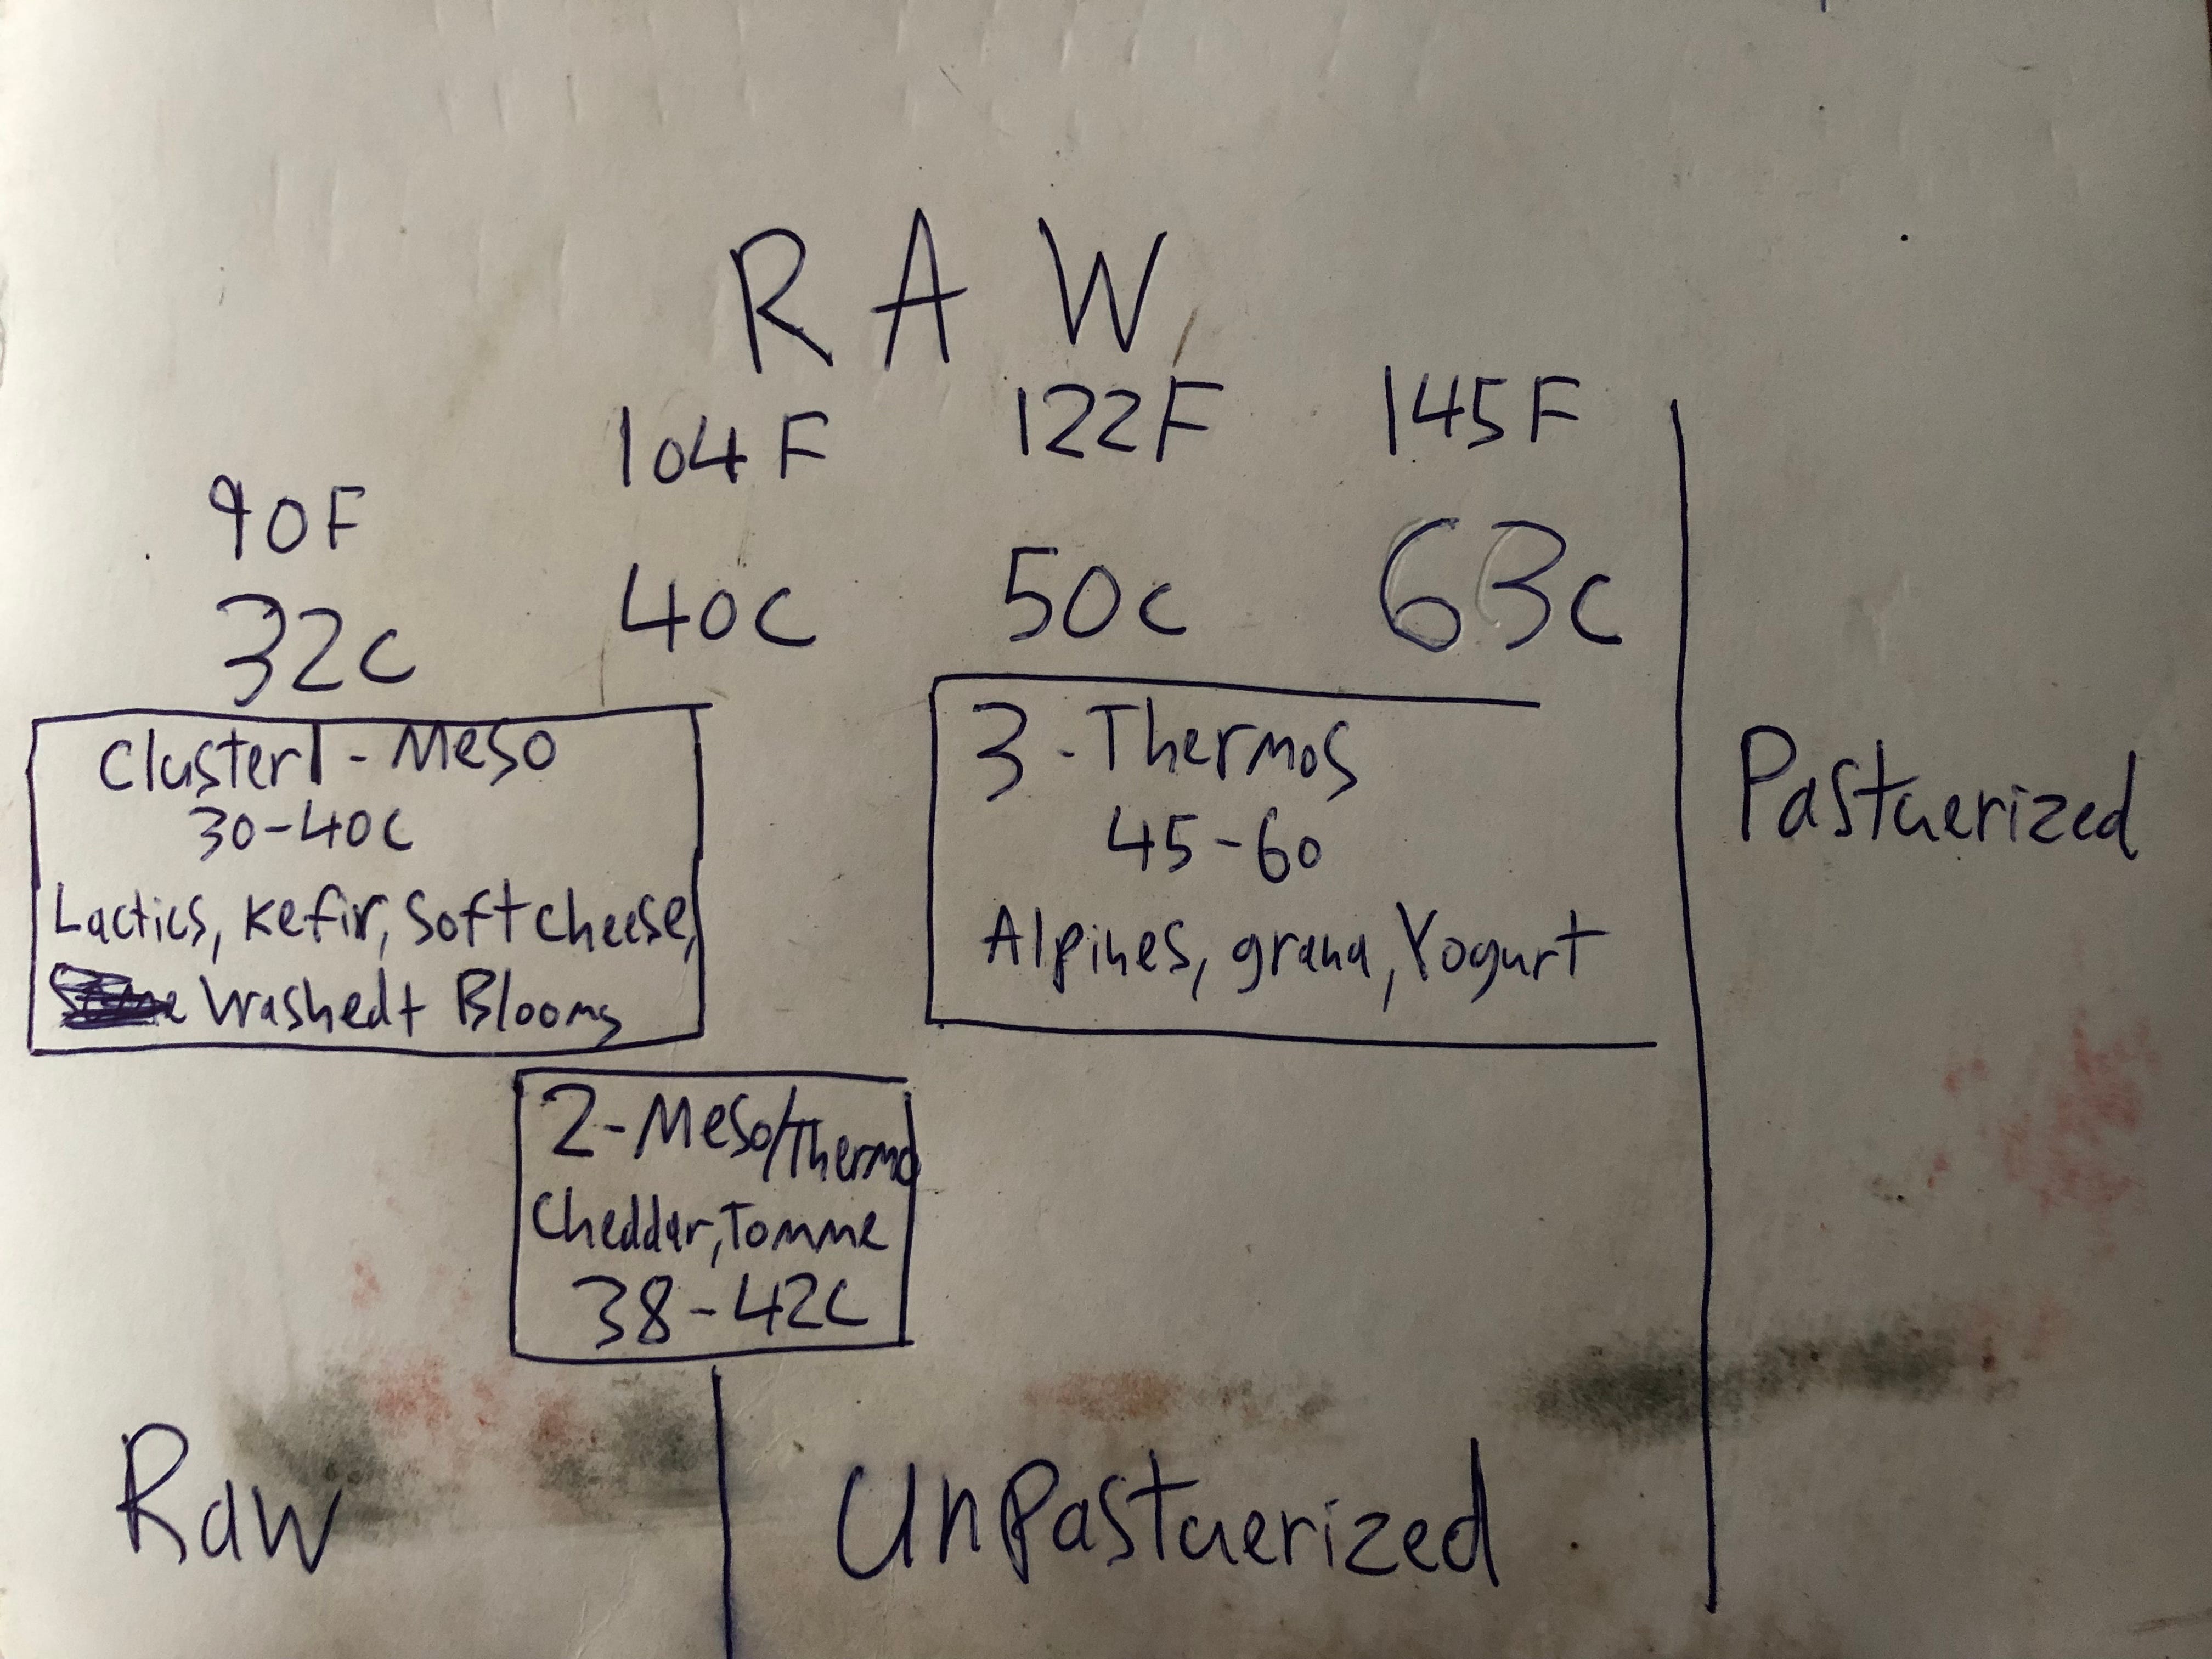 RAW
90F
104F
122F
145F
32c
40c
50c
63c
Cluster1 - Meso
30-40c
Lactics, kefir, Soft cheese,
Washed+ Blooms
3-Thermos
45-60
Alpines, grana, Yogurt
Pastuerized
2-Meso/Thermo
Cheddar, Tomme
38-42C
Raw
UnPastuerized